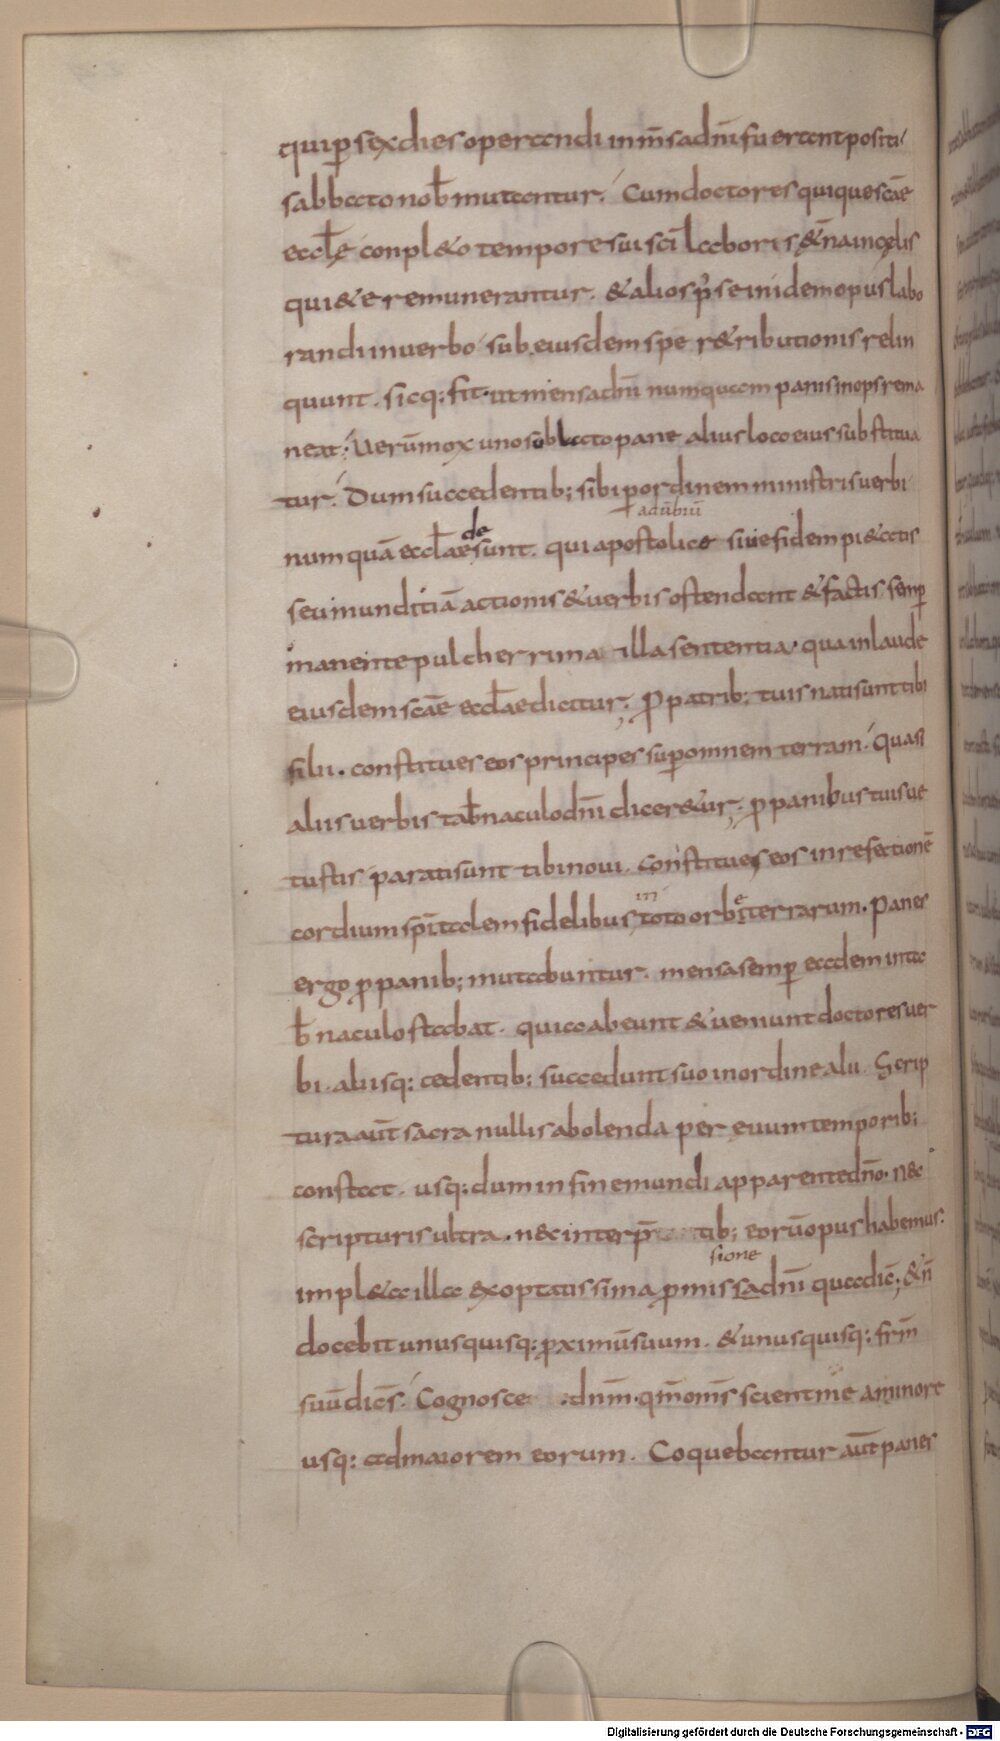 qui p̄ sex dies operandi in m̄sa dn̄i fuerant positi
sabbato nob̄ mutantur. Cum doctores quique scāe
eccl̄ę conpl&o tempore sui scī laboris &ęrna in cęlis
qui&e remunerantur. & alios p̄ se in idem opus labo
randi in uerbo sub eiusdem spe r&ributionis relin
quunt. sicq: fit. ut mensa dn̄i numquam panis inops rema
neat; Uerū mox uno sublato pane alius loco eius substitua
tur. Dum succedentib; sibi p̄ ordinem ministris uerbi
numquā eccl̄ae desunt. qui apostolice siue fidem pi&atis
seu munditiā actionis & uerbis ostendant & factis. semp̄
manente pulcherrima illa sententia. qua in laude
eiusdem scāe eccl̄ae dicitur; P̄ patrib; tuis nati sunt tibi
filii. constitues eos principes sup̄ omnem terram. Quasi
aliis uerbis tab̄naculo dn̄i dicer&ur; p̄ panibus tuis ue
tustis parati sunt tibi noui. Constitues eos in refectionē
cordium spīt̄alem fidelibus in toto orbe terrarum. Panes
ergo p̄ panib; mutabuntur. mensa semp̄ eadem in ta
b̄naculo stabat. quia abeunt & ueniunt doctores uer
bi. aliisq: cedentib; succedunt suo in ordine alii. Scrip
tura aut̄ sacra nullis abolenda per euum temporib;
constat. usq: dum in fine mundi apparente dn̄o. nec
scripturis ultra. nec interp̄ tib; eorū opus habemus.
impl&a illa exoptatissima p̄missione dn̄i qua dic̄; & n̄
docebit unusquisq: p̄ximū suum. & unusquisq: frm̄
suū dicēs. Cognosce dnm̄. qm̄ omn̄s scient me a minore
usq: ad maiorem eorum. Coquebantur aut̄ panes
Digitalisierung gefördert durch die Deutsche Forschungsgemeinschaft - DFG